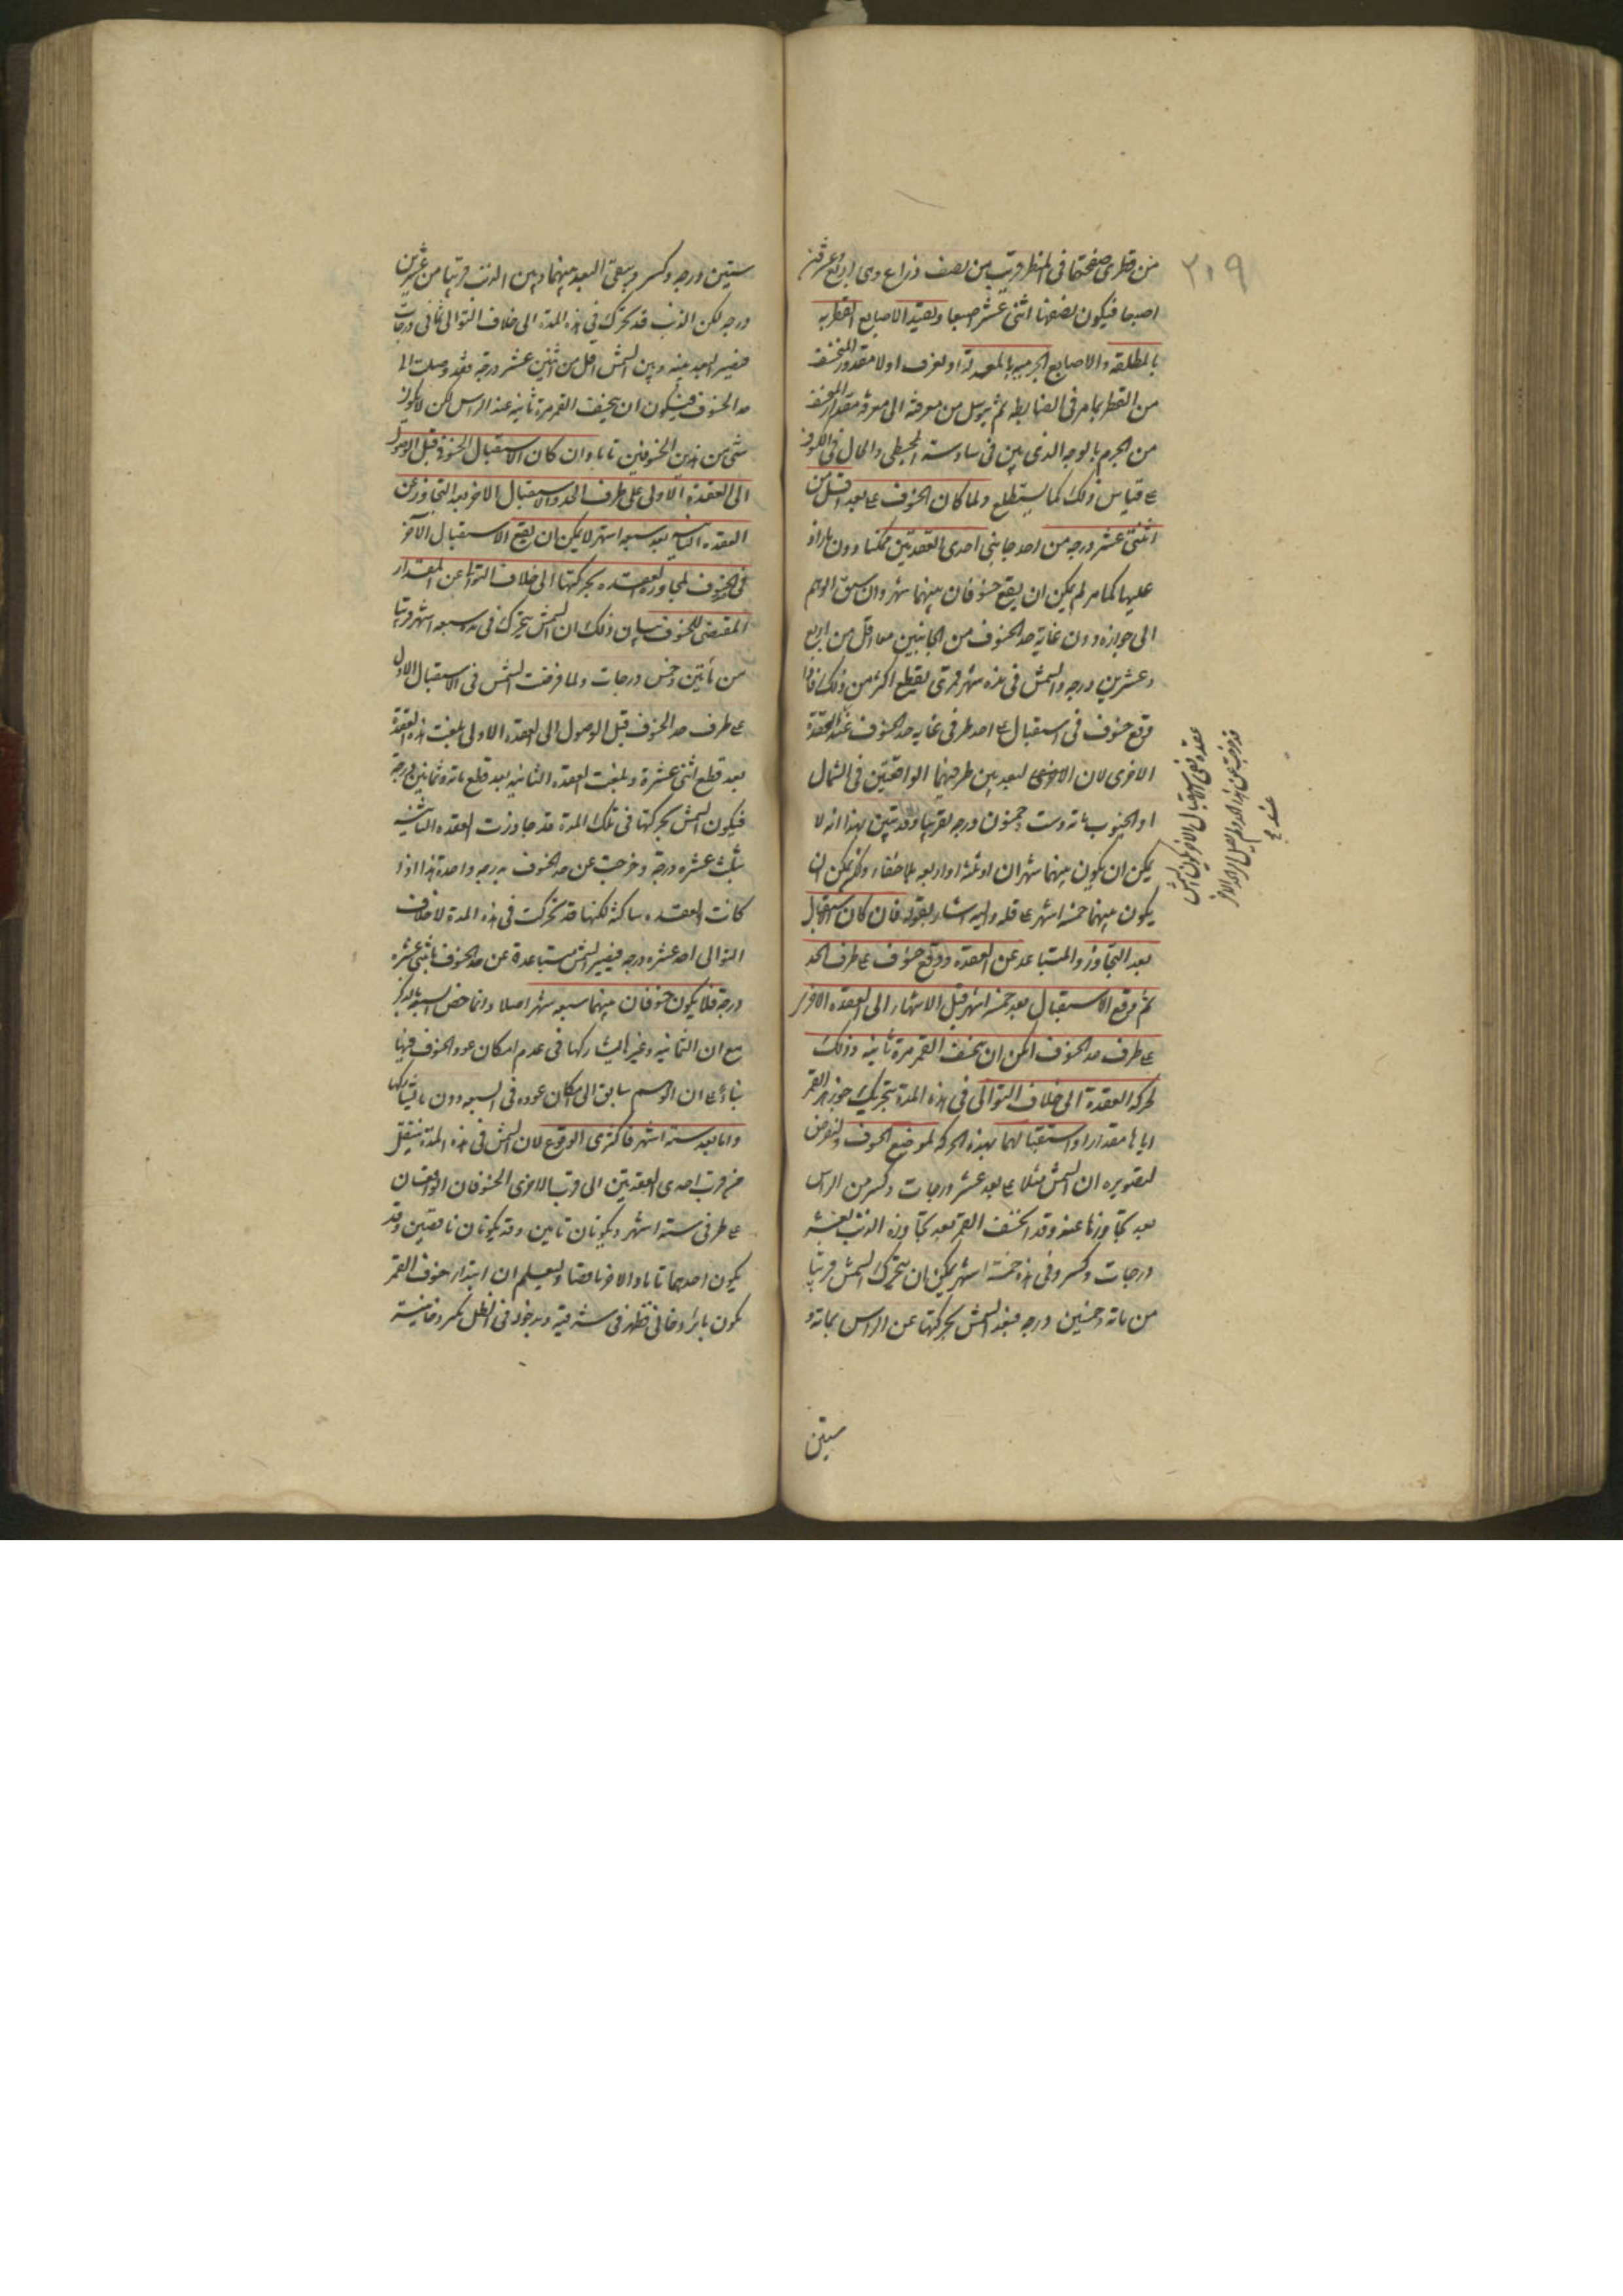 ٢١٩
من قطرى صفحتها فى المنظر قريب من نصف ذراع وهى اربع وعشرون
اصبعا فيكون نصفها اثنى عشر اصبعا ويقيد الاصابع القطريه
بالمطلقة والاصابع الجرميه بالمعدلة او لعرف اولا مقدور المنخسف
من القطر بما مر فى الضابطه ثم يتوسل من معرفته الى معرفة مقدار المنخسف
من الجرم بالوجه الذى بين فى سادسة المجسطى والحال فى الكسوف
ع قياس ذلك كما ستطلع ولما كان الخسوف ع بعد اقل من
اثنتى عشر درجه من احد جانبى احدى العقدتين ممكنا دون ما زاد
عليها كما مر لم يمكن ان يقع خسوفان بينهما شهر وان سبق الوهم
الى جوازه دون غاية حد الخسوف من الجانبين معا اقل من اربع
وعشرين درجه والشمس فى هذه شهر قمرى يقطع اكثر من ذلك فاذا
وقع خسوف فى استقبال ع احد طرفى غاية حد الخسوف عند العقدة
الاخرى لان الاخرى لبعد بين طرفيهما الواقعتين فى الشمال
او الجنوب مائة وست وخمسون درجه تقريبا وقد تبين بهذا انه لا
يمكن ان يكون بينهما شهران او ثلثة او اربعه بلا خفاء ولكن يمكن ان
يكون بينهما خمسة اشهر ع قله واليه اشار بقوله فان كان الاستقبال
بعد التجاوز والمتباعد عن العقدة ووقع خسوف ع طرف الحد
ثم وقع الاستقبال بعد خمسة اشهر قبل الانتهاء الى العقدة الاخرى
ع طرف حد الخسوف امكن ان يخسف القمر مرة ثانية وذلك
لحركة العقدة الى خلاف التوالى فى هذه المدة بتحريك جوزهر القمر
اياها مقدارا واستقبالهما بهذه الحركة لموضع الخسوف ولنفرض
لتصويره ان الشمس مثلا ع بعد عشر درجات وكسر من الراس
بعد تجاوزها عنه وقد انخسف القمر بعد تجاوزه الذنب بعشر
درجات وكسر وفى هذه خمسة اشهر يمكن ان يتحرك الشمس قريبا
من مائة وخمسين درجه فبعد الشمس بحركتها عن الراس بمائة و
ستين
عقده ففى الاستقبال الاول يكون الشمس
قد خرجت عن هذا الحد ولم يصل الى الحد الاخر
عند
ستين درجه وكسر ويبقى البعد بينهما وبين الذنب قريبا من عشرين
درجه لكن الذنب قد تحرك فى هذه المدة الى خلاف التوالى ثمانى درجات
فيصير البعد بينه وبين الشمس اقل من اثنين عشر درجة فقد وصلت الى
حد الخسوف فيكون ان يخسف القمر مرة ثانيه عند الراس لكن لا يكون
شئ من هذين الخسوفين تاما وان كان الاستقبال الخسوفى قبل الوصول
الى العقدة الاولى على طرف الحد والاستقبال الاخر بعد التجاوز عن
العقده الثانيه بعد سبعه اشهر لا يمكن ان يقع الاستقبال الآخر
فى الخسوف لمجاوزة العقده بحركتها الى خلاف التوالى عن المقدار
المقتضى للخسوف بيان ذلك ان الشمس يتحرك فى مدة سبعه اشهر قريبا
من مأتين وخمس درجات ولما فرضت الشمس فى الاستقبال الاول
ع طرف حد الخسوف قبل الوصول الى العقده الاولى بلغت هذه العقدة
بعد قطع اثنى عشرة وبلغت العقدة الثانيه بعد قطع مائة وثمانين درجة
فيكون الشمس بحركتها فى تلك المدة قد جاوزت العقده الثانيه
بثلث عشره درجة وخرجت عن حد الخسوف بدرجه واحدة هذا اذا
كانت العقده ساكنة لكنها قد تحركت فى هذه المدة لا خلاف
التوالى احد عشره درجه فيصير الشمس متباعدة عن حد الخسوف باثنى عشره
درجة فلا يكون خسوفان بينهما سبعه شهر اصلا وانما خص السبعه بالذكر
مع ان الثمانيه وغيرها يشاركها فى عدم امكان عود الخسوف فيها
بناء ع ان الوهم سابق الى امكان عوده فى السبعه دون ما يشاركها
واما بعد سته اشهر فاكثرى الوقوع لان الشمس فى هذه المدة ينتقل
من قرب احدى العقدتين الى قرب الاخرى الخسوفان الواقعان
ع طرفى ستة اشهر ويكونان تامين وقد يكونان ناقصين وقد
يكون احدهما تاما والاخر ناقصا وليعلم ان ابتداء خسوف القمر
يكون باثر دخانى يظهر فى شرقيه وبدخوله فى الظل يكسر دخانيته